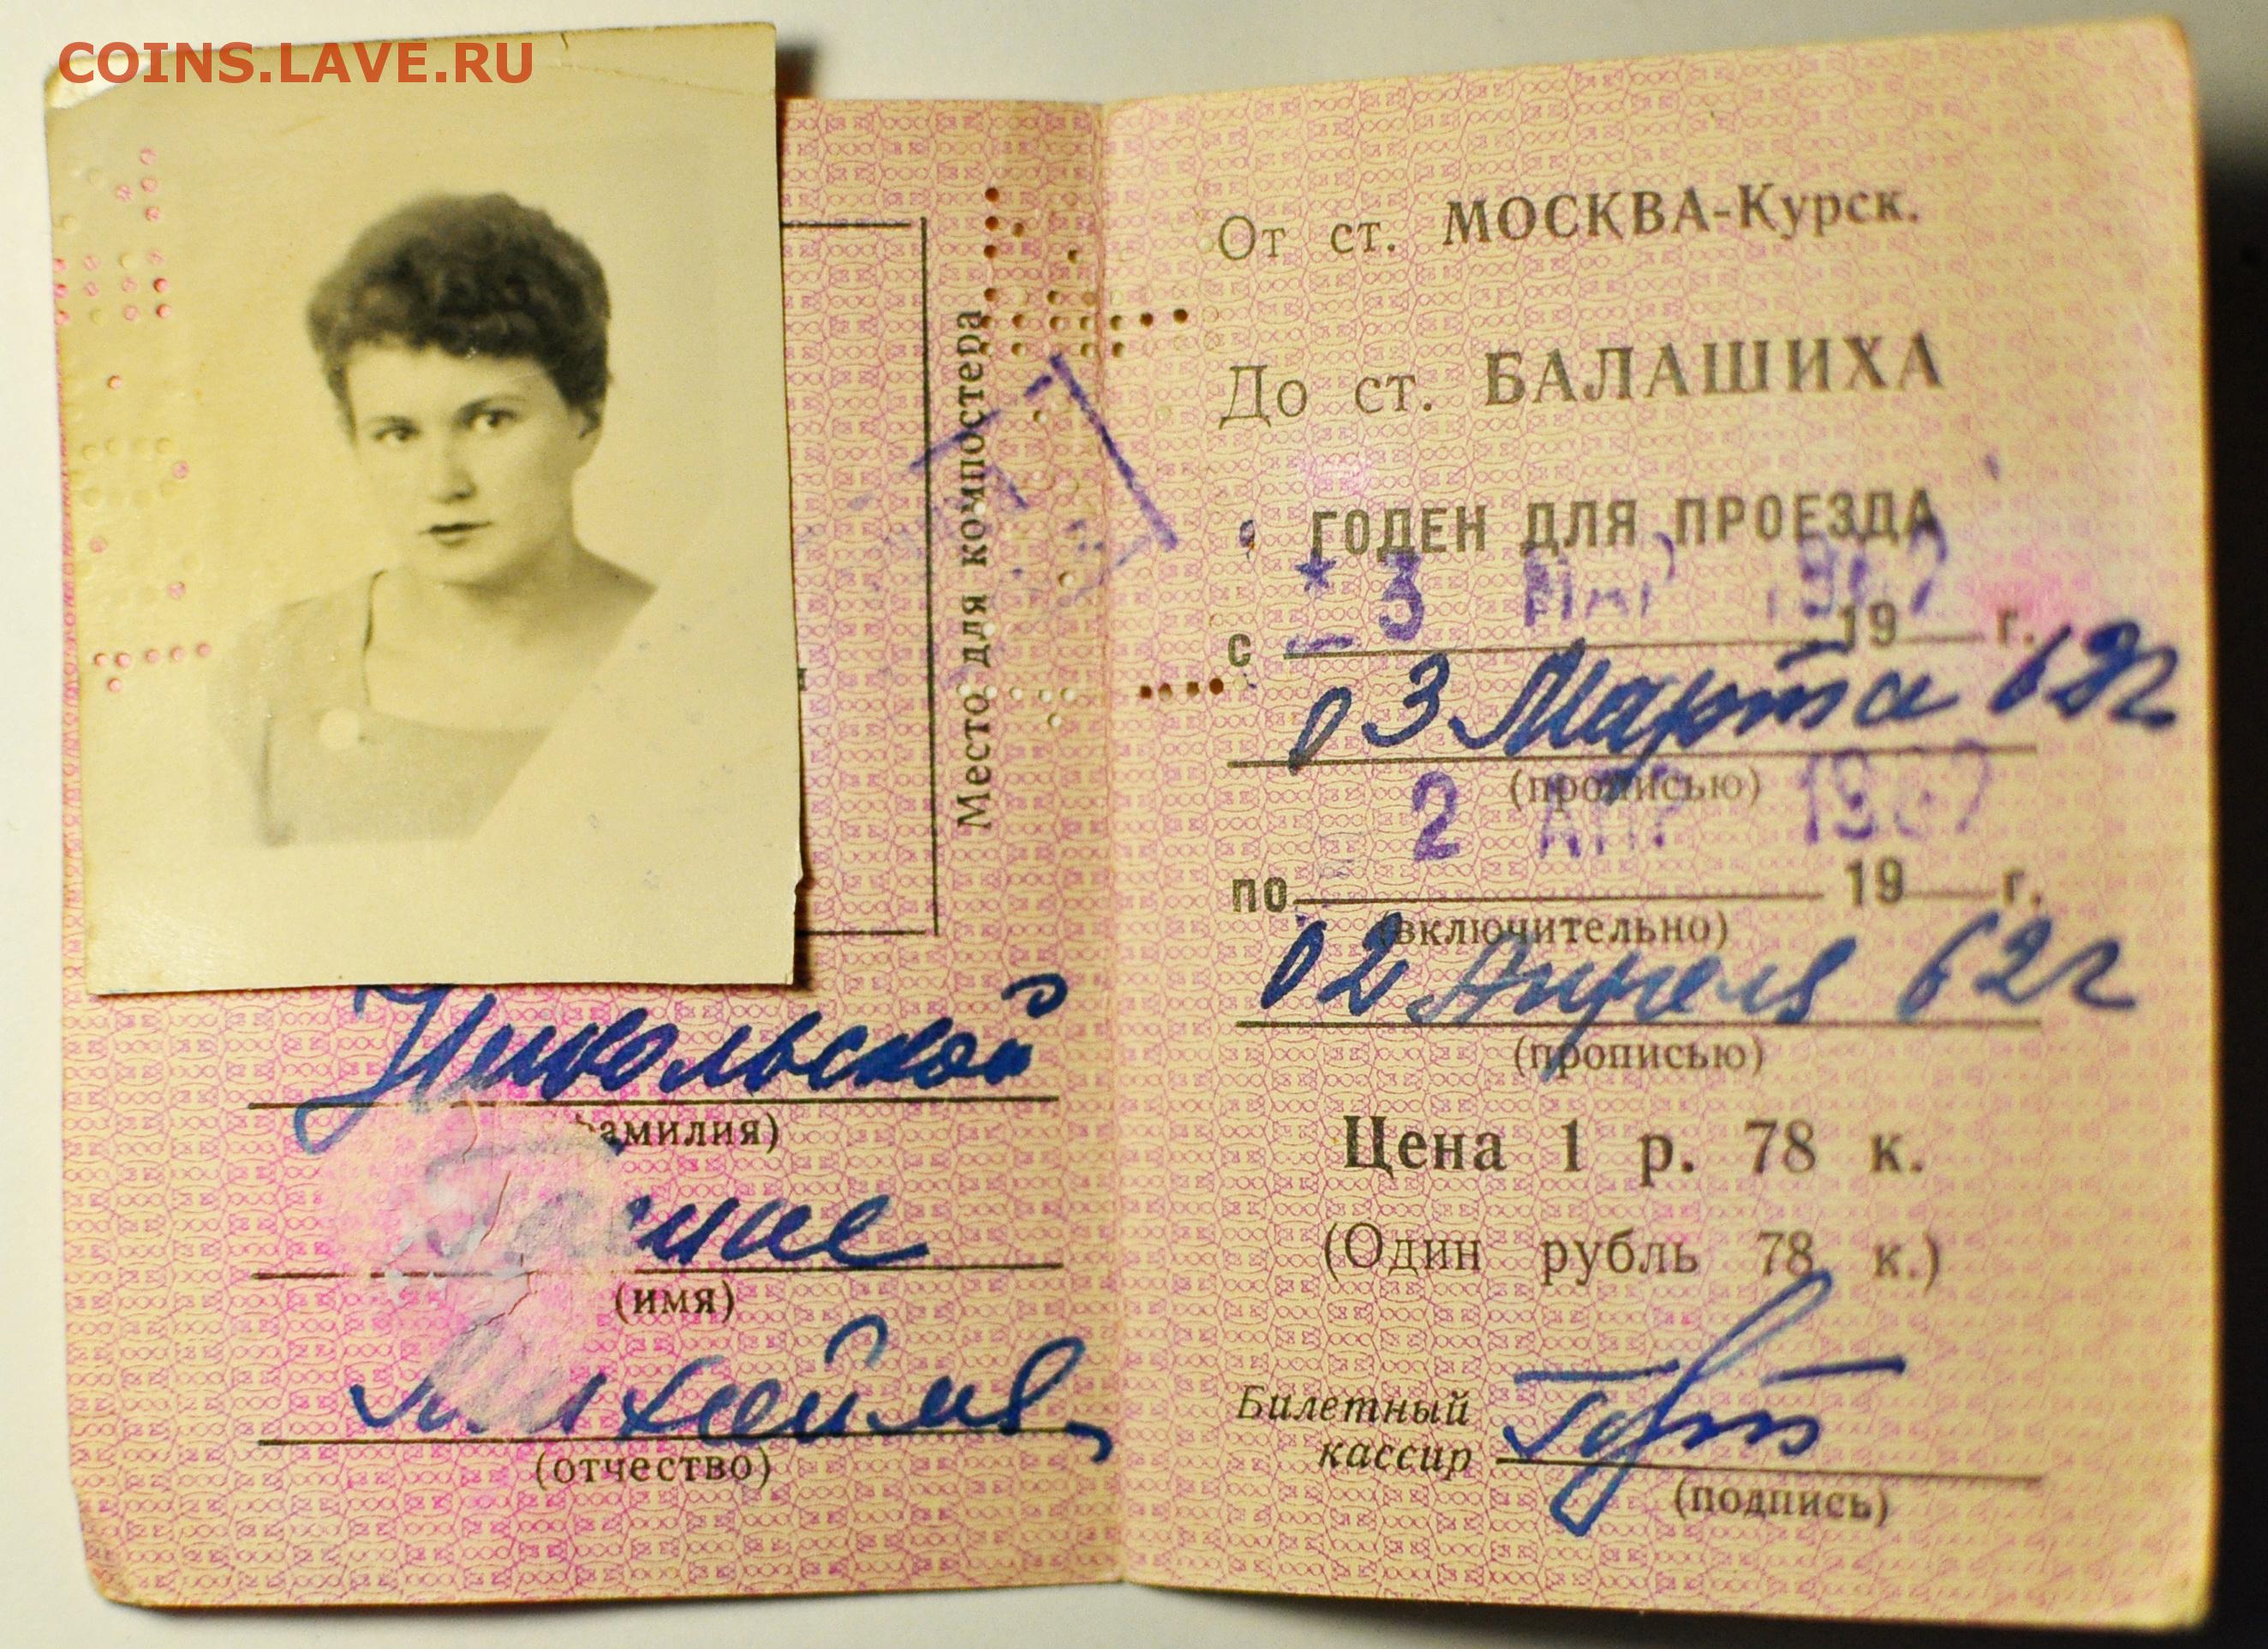 COINS.LAVE.RU
Место для компостера
Никольской
фамилия)
(имя)
Михайловн
(отчество)
От ст. МОСКВА-Курск.
До ст. БАЛАШИХА
ГОДЕН ДЛЯ ПРОЕЗДА
* - 3 МАР 1962
с 19 г.
03 Марта 62г
(прописью)
2 АПР 1962
по 19 г.
(включительно)
02 Апреля 62г
(прописью)
Цена 1 р. 78 к.
(Один рубль 78 к.)
Билетный
кассир
(подпись)